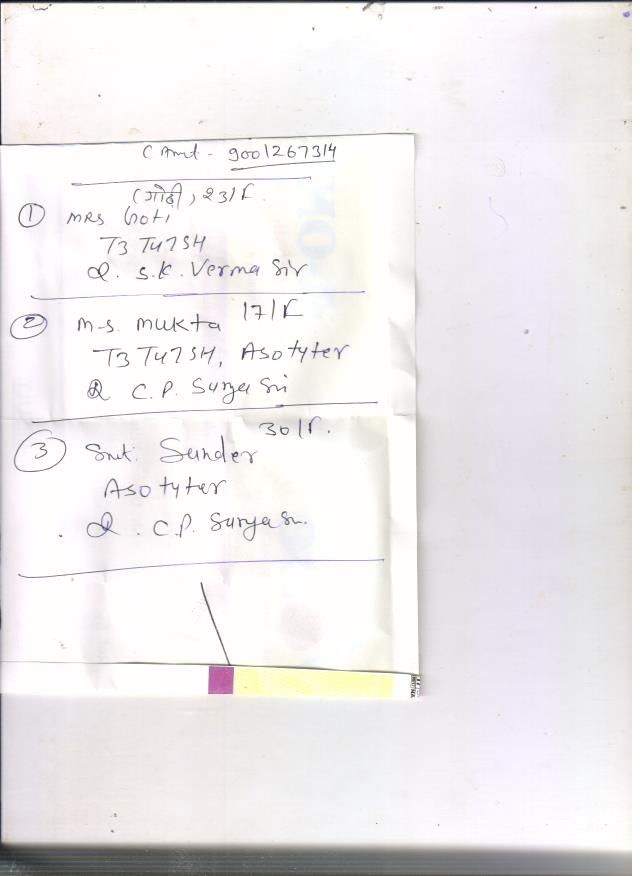 C Amt - 9001267314
(गोदी), 23/F.
① MRS Goti
T3 T4 TSH
D. S.K. Verma Sir
② M-s. Mukta 17/F
T3 T4 TSH, Aso tyter
D C.P. Surya Sir
30/F.
③ Smt. Sunder
Aso tyter
D. C.P. Surya Sir.